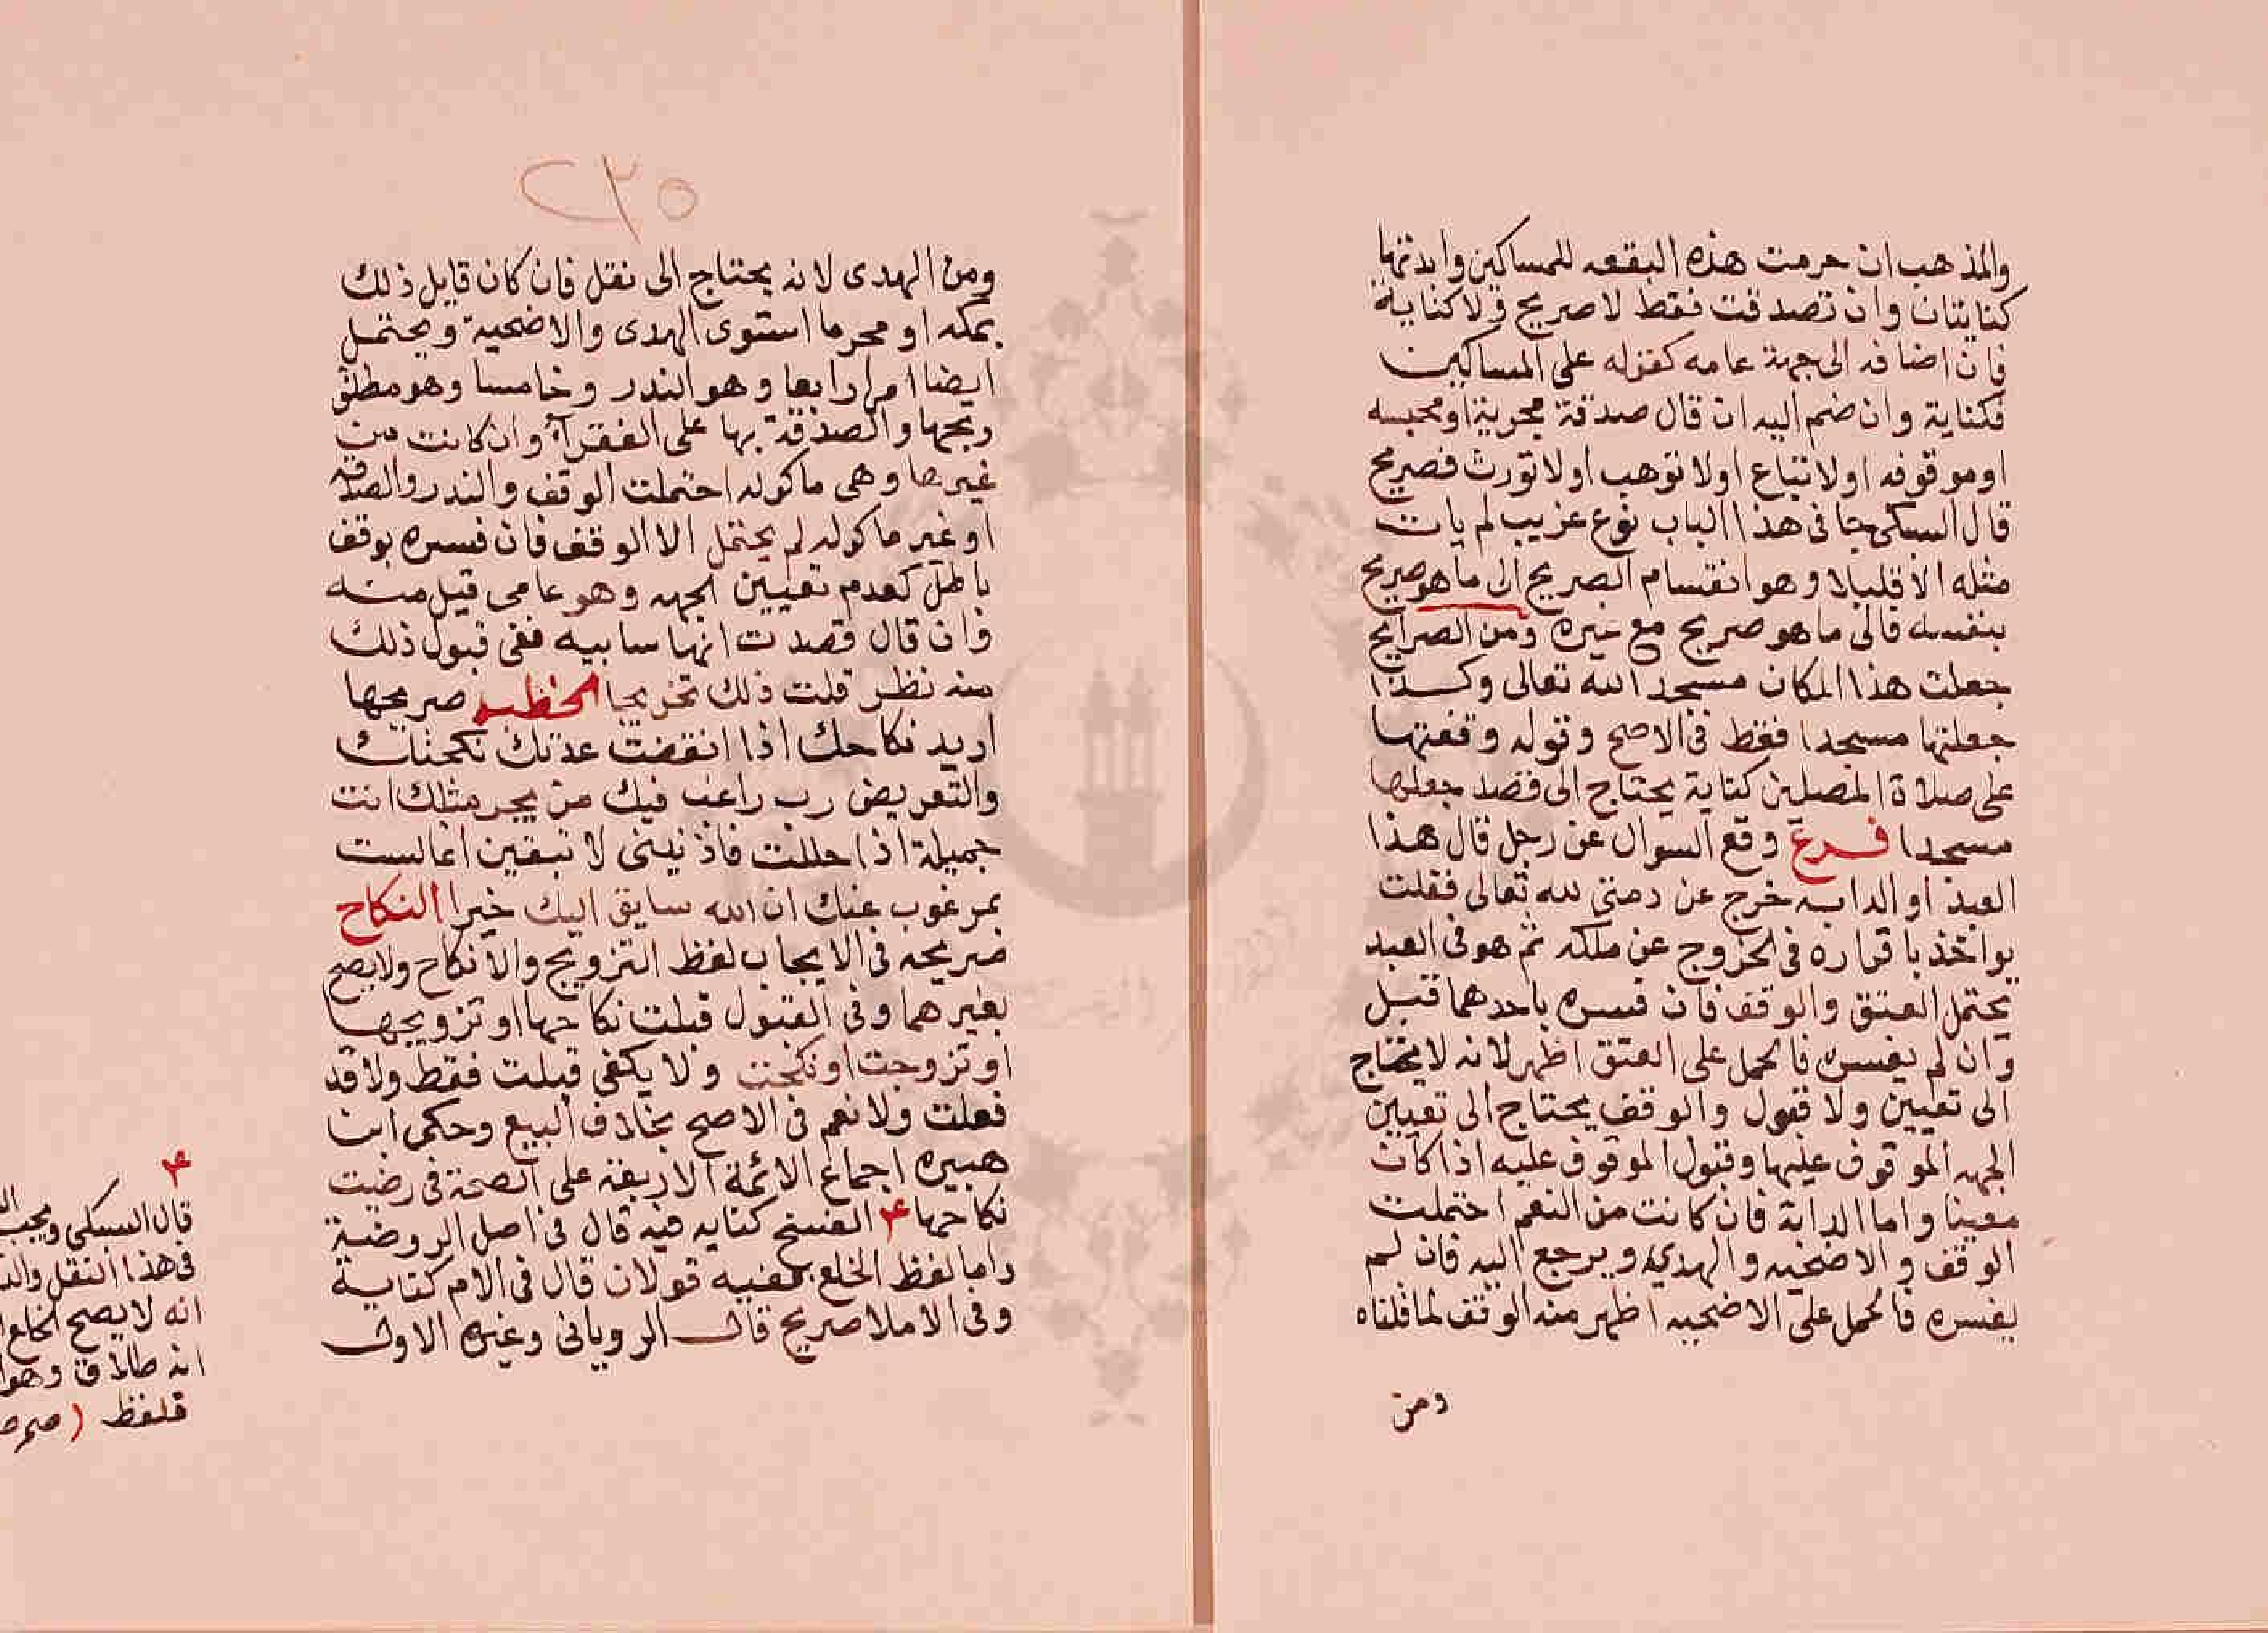 والمذهب ان حرمت هذه البقعه للمساكين وابدتها
كنايتان وان تصدقت فقط لا صريح ولا كناية
فان اضافه الى جهة عامه كقوله على المساكين
فكناية وان ضم اليه ان قال صدقة محرمة او محبسه
او موقوفه او لا تباع او لا توهب او لا تورث فصريح
قال السبكى فى هذا الباب نوع غريب لم يات
مثله الا قليلا وهو انقسام الصريح الى ما هو صريح
بنفسه والى ما هو صريح مع غيره ومن الصرايح
جعلت هذا المكان مسجدا لله تعالى وكذا
جعلتها مسجدا فقط فى الاصح وقوله وقفتها
على صلاة المصلين كناية يحتاج الى قصد جعلها
مسجدا فرع وقع السوال عن رجل قال هذا
العبد او الدابه خرج عن ذمتى لله تعالى فقلت
يواخذ باقراره فى الخروج عن ملكه ثم هو فى العبد
يحتمل العتق والوقف فان فسره باحدهما قبل
وان لم يفسره فالحمل على العتق اظهر لانه لا يحتاج
الى تعيين ولا قبول والوقف يحتاج الى تعيين
الجهه الموقوف عليها وقبول الموقوف عليه اذا كان
معينا واما الدابة فان كانت من النعم احتملت
الوقف والاضحيه والهدي ويرجع اليه فان لم
يفسره فالحمل على الاضحيه اظهر منه الوقف لما قلناه
ومن
٢٣٥
ومن الهدى لانه يحتاج الى نقل فان كان قايل ذلك
بمكه او محرما استوى الهدى والاضحية ويحتمل
ايضا امرا رابعا وهو الندر وخامسا وهو مطلق
ربحها والصدقة بها على الفقرآء وان كانت من
غيرها وهى ماكوله احتملت الوقف والندر والصدقه
او غير ماكوله لم يحتمل الا الوقف فان فسره بوقف
باطل كعدم تعيين الجهه وهو عامى قبل منه
وان قال قصدت انها سايبه ففى قبول ذلك
منه نظر قلت ذلك تخريجا الخطبه صريحها
اريد نكاحك اذا انقضت عدتك نكحتك
والتعريض رب راغب فيك من يجد مثلك انت
جميلة اذا حللت فاذنينى لا تبقين اغالست
بمرغوب عنك ان الله سايق اليك خيرا النكاح
صريحه فى الايجاب لفظ التزويج والانكاح ولا يصح
بغيرهما وفى القبول قبلت نكاحها او تزويجها
او تزوجت او نكحت ولا يكفى قبلت فقط ولا قد
فعلت ولا نعم فى الاصح بخلاف البيع وحكى ابن
هبيره اجماع الائمة الاربعة على الصحة فى رضيت
نكاحها ۴ الفسخ كنايه فيه قال فى اصل الروضة
واما لفظ الخلع ففيه قولان قال فى الام كناية
وفى الاملا صريح قال الرويانى وغيره الاول
۴
قال السبكى ويجب
فى هذا النقل
انه لا يصح
انه طلاق وهو
فلفظ